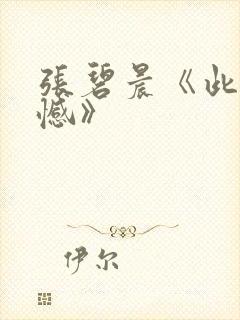 張碧晨《此
憾》
伊尔